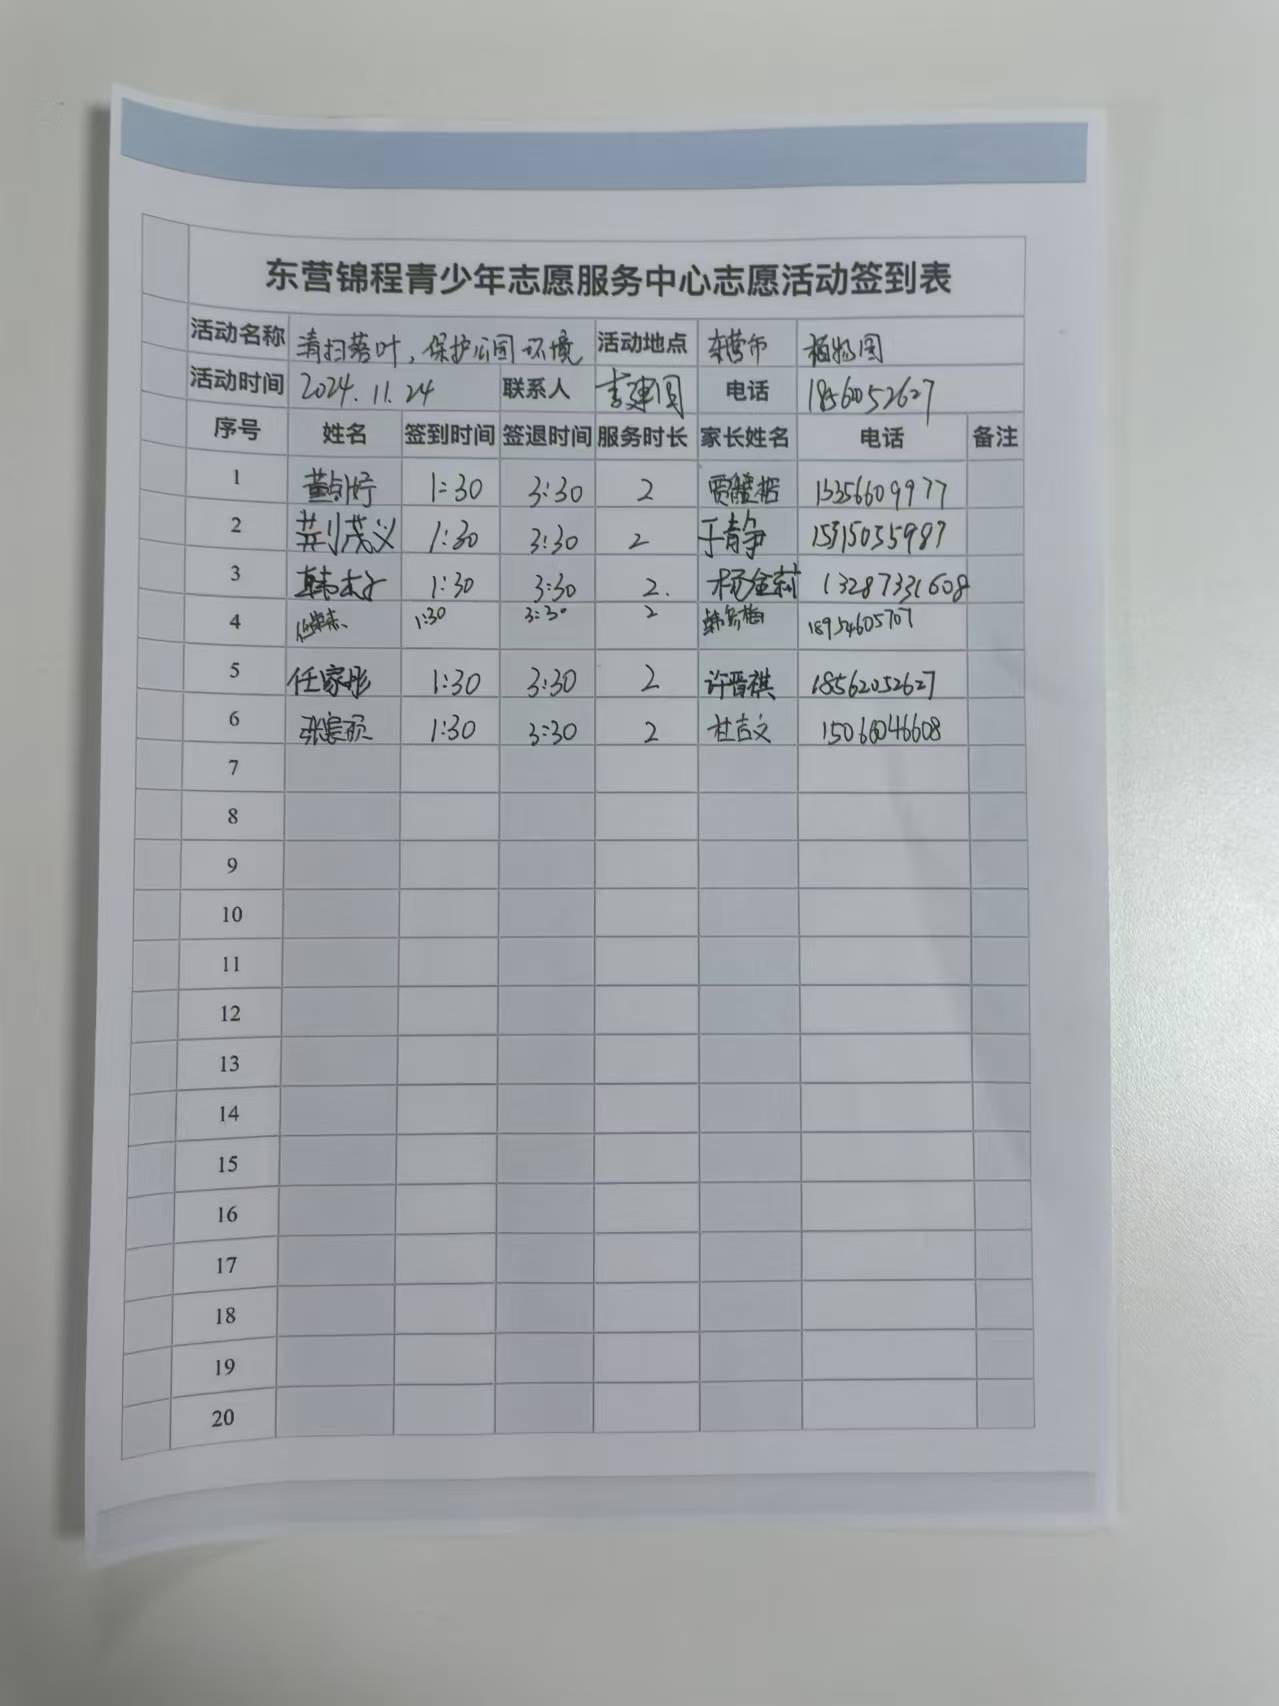 东营锦程青少年志愿服务中心志愿活动签到表
活动名称 清扫落叶，保护公园环境 活动地点 东营市 植物园
活动时间 2024.11.24 联系人 电话 18562052627
序号 姓名 签到时间 签退时间 服务时长 家长姓名 电话 备注
1 1:30 3:30 2 15356609977
2 荆茂义 1:30 3:30 2 于静 15315035987
3 1:30 3:30 2. 杨金莉 13287331608
4 1:30 3:30 2 18954605707
5 任家彤 1:30 3:30 2 许晋祺 18562052627
6 1:30 3:30 2 杜吉文 15066046608
7
8
9
10
11
12
13
14
15
16
17
18
19
20